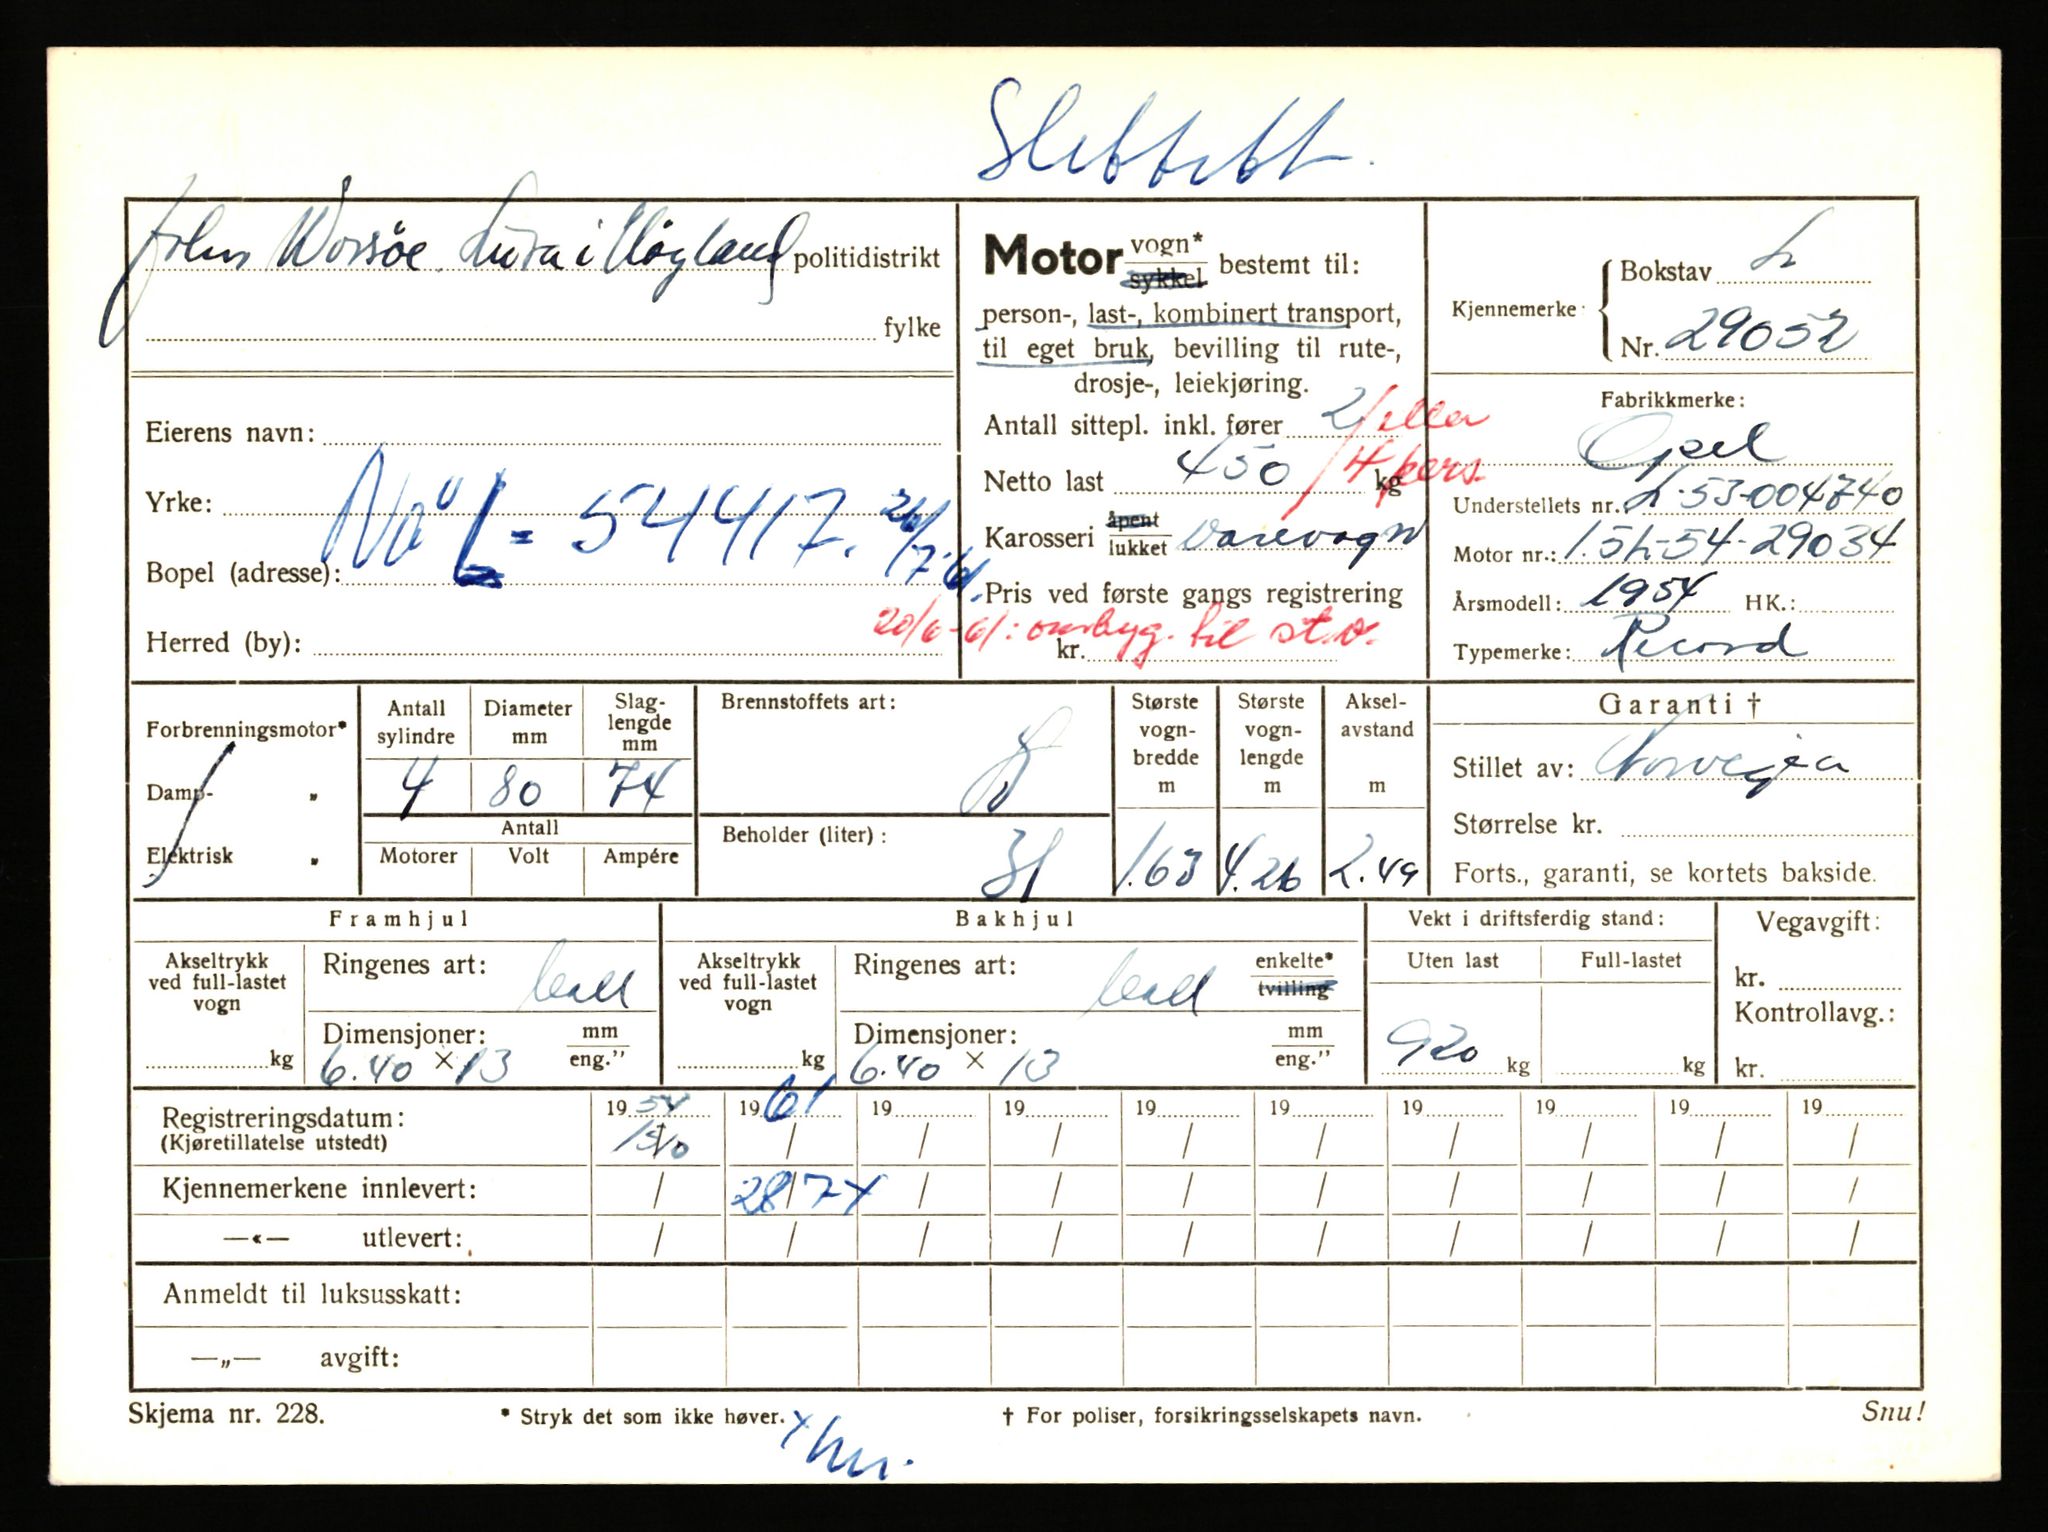 Slettet.
John Worsøe. Lura i Høyland politidistrikt
fylke
Eierens navn:
Yrke:
Nå L = 54417. 20/7-61.
Bopel (adresse):
Herred (by):
Motor vogn* sykkel bestemt til:
person-, last-, kombinert transport,
til eget bruk, bevilling til rute-,
drosje-, leiekjøring.
Antall sittepl. inkl. fører 2 / eller
Netto last 450 kg / 4 pers.
Karosseri åpent lukket Varevogn
Pris ved første gangs registrering
20/6-61: ombyg. til st.v.
kr.
Kjennemerke: Bokstav L
Nr. 29052
Fabrikkmerke:
Opel
Understellets nr. L-53-004740
Motor nr.: 1.5L-54-29034
Årsmodell: 1954 HK.:
Typemerke: Record
Forbrenningsmotor*
Damp- „
Elektrisk „
Antall sylindre Diameter mm Slaglengde mm
4 80 74
Antall
Motorer Volt Ampére
Brennstoffets art:
B
Beholder (liter): 31
Største vognbredde m Største vognlengde m Akselavstand m
1.63 4.26 2.49
Garanti †
Stillet av: Norvegia
Størrelse kr.
Forts., garanti, se kortets bakside.
Framhjul
Akseltrykk ved full-lastet vogn
kg
Ringenes art:
Dimensjoner: mm eng."
6.40 × 13
Bakhjul
Akseltrykk ved full-lastet vogn
kg
Ringenes art: enkelte* tvilling
Dimensjoner: mm eng."
6.40 × 13
Vekt i driftsferdig stand:
Uten last Full-lastet
920 kg kg
Vegavgift:
kr.
Kontrollavg.:
kr.
Registreringsdatum: 1954 1961 19 19 19 19 19 19 19 19
(Kjøretillatelse utstedt) / / / / / / / / /
Kjennemerkene innlevert: / 28/7 x / / / / / / / /
—«— utlevert: / / / / / / / / / /
Anmeldt til luksusskatt:
—„— avgift:
Skjema nr. 228. * Stryk det som ikke høver. † For poliser, forsikringsselskapets navn. Snu!